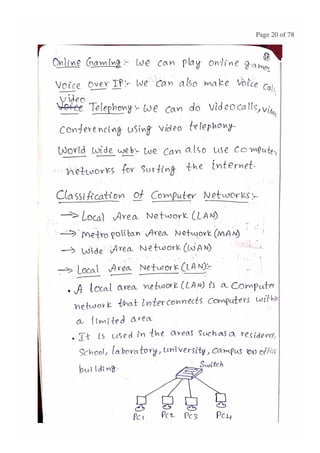 Page 20 of 78
Online Gaming :- We can play online games
Voice over IP:- We can also make Voice Calls
Video
Voice Telephony :- We can do Videocalls, video
Conferencing using video telephony.
World wide web:- we can also use Computer
networks for Surfing the internet.
Classification of Computer Networks:-
→ Local Area Network (LAN)
→ Metropolitan Area Network (MAN)
→ Wide Area Network (WAN)
→ Local Area Network (LAN):-
• A local area network (LAN) is a Computer
network that interconnects computers within
a limited area
• It is used in the areas such as a residence,
School, laboratory, university, Campus (or) office
building.
Switch
PC1 PC2 PC3 PC4